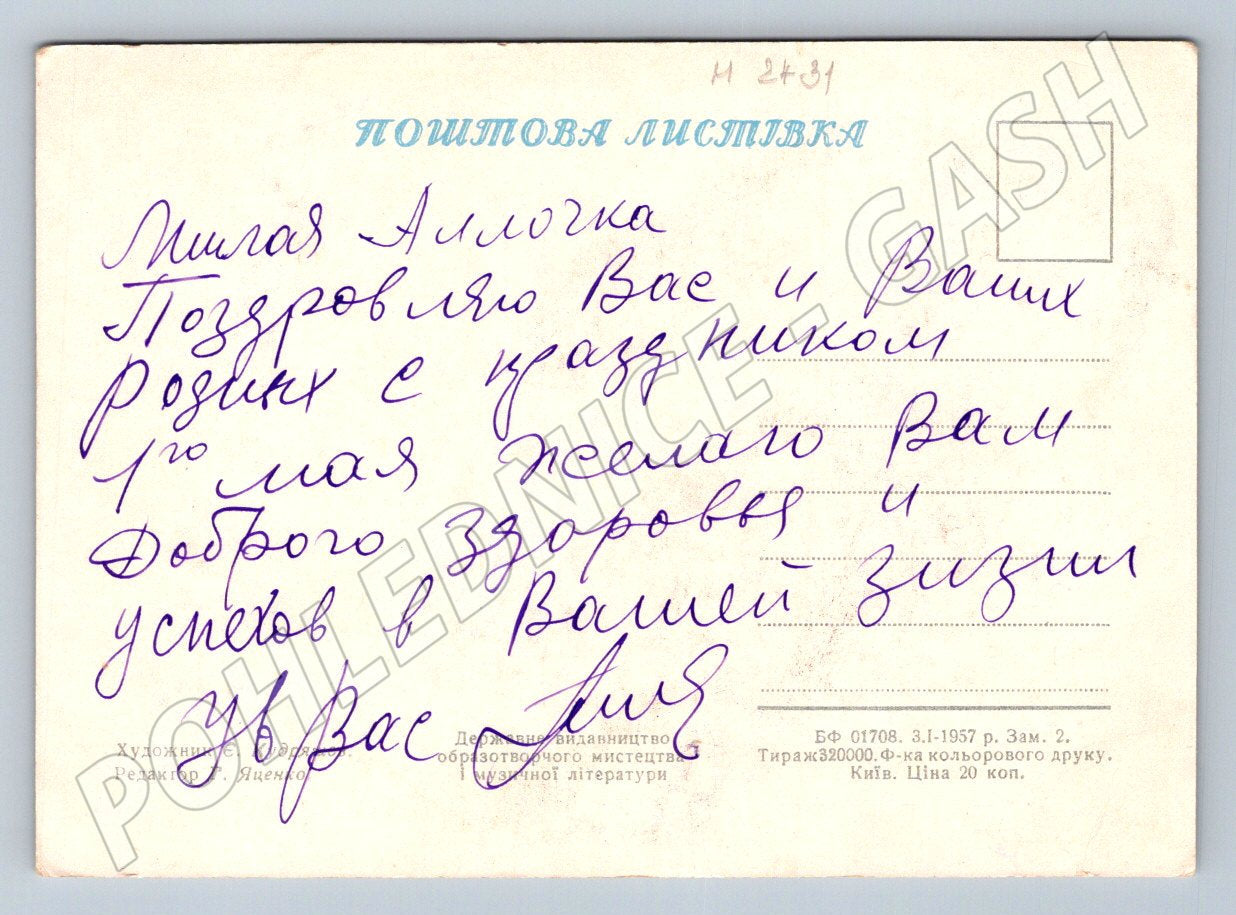 И 2431
ПОШТОВА ЛИСТІВКА
Милая Аллочка
Поздровляю Вас и Ваших
родных с праздником
1го мая желаю Вам
Доброго здоровья и
успехов в Вашей жизни
Ув Вас
Художник Є. Кудряшов.
Редактор Г. Яценко
Державне видавництво
образотворчого мистецтва
і музичної літератури
БФ 01708. 3.I-1957 р. Зам. 2.
Тираж320000. Ф-ка кольорового друку.
Київ. Ціна 20 коп.
POHLEDNICE - GASH